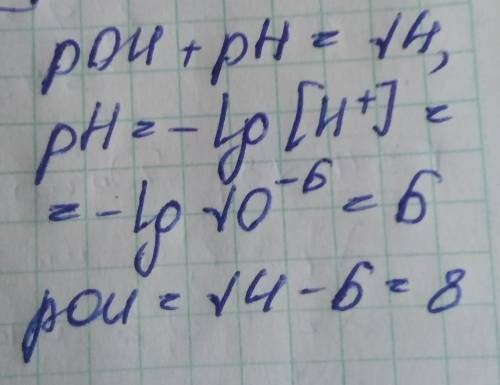 pOH + pH = 14,
pH = - lg [H⁺] =
= - lg 10⁻⁶ = 6
pOH = 14 - 6 = 8